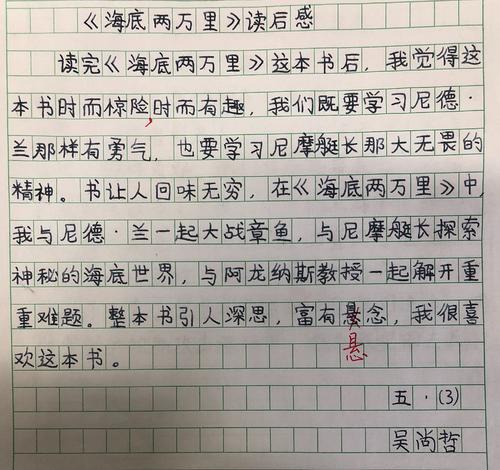 《海底两万里》读后感
读完《海底两万里》这本书后，我觉得这
本书时而惊险，时而有趣，我们既要学习尼德·
兰那样有勇气，也要学习尼摩艇长那大无畏的
精神。书让人回味无穷，在《海底两万里》中，
我与尼德·兰一起大战章鱼，与尼摩艇长探索
神秘的海底世界，与阿龙纳斯教授一起解开重
重难题。整本书引人深思，富有悬念，我很喜
悬
欢这本书。
五·(3)
吴尚哲